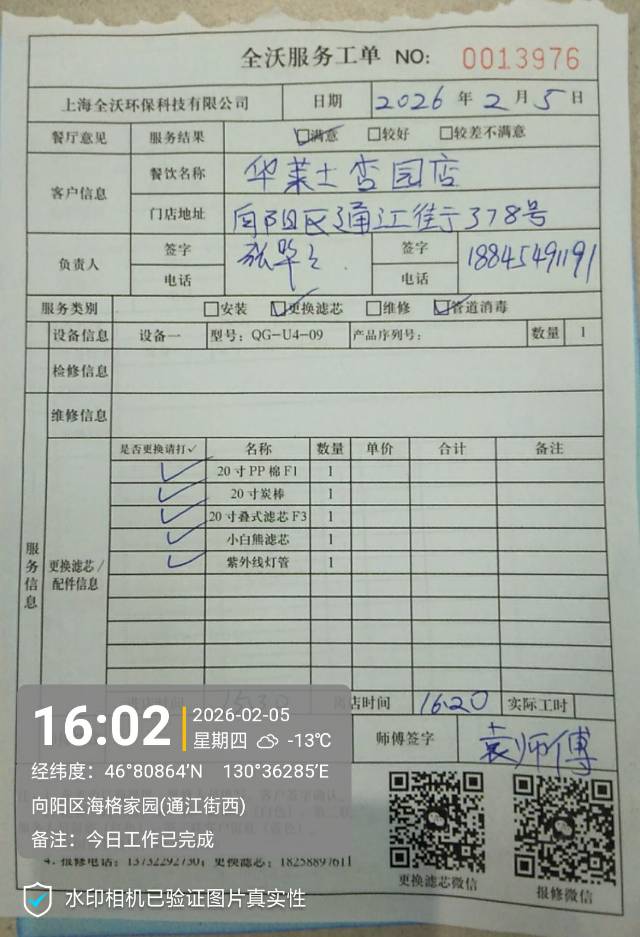 全沃服务工单 NO: 0013976
上海全沃环保科技有限公司 日期 2026 年 2 月 5 日
餐厅意见 服务结果 ☑满意 □较好 □较差不满意
客户信息 餐饮名称 华莱士杏园店
门店地址 向阳区通江街于378号
负责人 签字 签字
电话 电话 18845491191
服务类别 □安装 ☑更换滤芯 □维修 ☑管道消毒
设备信息 设备一 型号：QG-U4-09 产品序列号： 数量 1
检修信息
维修信息
服务信息 更换滤芯/配件信息
是否更换请打✓ 名称 数量 单价 合计 备注
✓ 20寸PP棉F1 1
✓ 20寸炭棒 1
✓ 20寸叠式滤芯F3 1
✓ 小白熊滤芯 1
✓ 紫外线灯管 1
离店时间 16:20 实际工时
师傅签字 袁师傅
16:02 2026-02-05
星期四 -13℃
经纬度：46°80864′N 130°36285′E
向阳区海格家园(通江街西)
备注：今日工作已完成
4. 报修电话：13732292730；更换滤芯：18258897611
更换滤芯微信 报修微信
水印相机已验证图片真实性